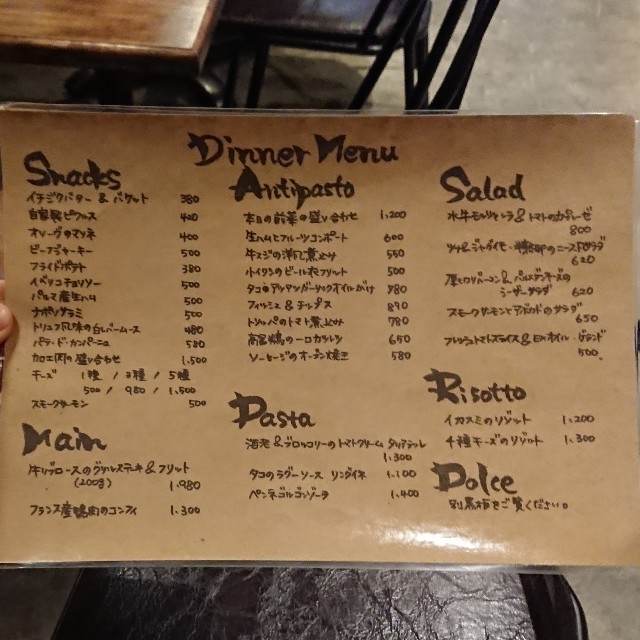 Dinner Menu
Snacks
イチジクバター & バケット 380
自家製ピクルス 420
オリーブのマリネ 400
ビーフジャーキー 500
フライドポテト 380
イベリコチョリソー 500
パルマ産生ハム 500
ナポリサラミ 500
トリュフ風味の白レバームース 480
パテ・ド・カンパーニュ 580
加工肉の盛り合わせ 1,500
チーズ 1種 / 3種 / 5種
500 / 980 / 1,500
スモークサーモン 500
Main
牛リブロースのグリルステーキ & フリット
(200g) 1,980
フランス産鴨肉のコンフィ 1,300
Antipasto
本日の前菜の盛り合わせ 1,200
生ハムとフルーツコンポート 600
牛スジの洋風煮込み 550
小イワシのビール衣フリット 500
タコのアツアツガーリックオイルがけ 780
フィッシュ & チップス 890
トリッパのトマト煮込み 780
一口カツレツ 650
ソーセージのオーブン焼き 580
Pasta
海老 & ブロッコリーのトマトクリーム タリアテッレ
1,300
タコのラグーソース リングイネ 1,100
ペンネゴルゴンゾーラ 1,400
Salad
水牛モッツァレラ & トマトのカプレーゼ
800
ツナ & ジャガイモ・ のニース風サラダ
620
厚切りベーコン & パルメザンチーズの
シーザーサラダ 620
スモークサーモンとアボカドのサラダ
650
フレッシュトマトスライス & EXオイル・ゲランド
500
Risotto
イカスミのリゾット 1,200
4種チーズのリゾット 1,300
Dolce
別黒板をご覧ください。